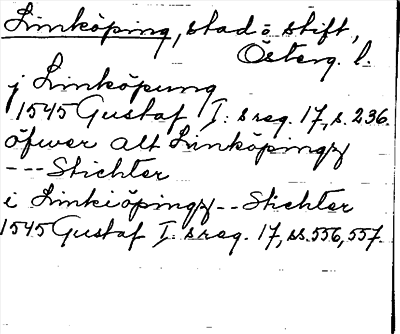 Linköping, stad o stift,
Österg. l.
j Linköpung
1545 Gustaf I: s reg. 17, s. 236.
öfwer alt Linköpingz
--- Stichter
i Linkiöpingz -- Stichter
1545 Gustaf I: s reg. 17, ss. 556, 557.